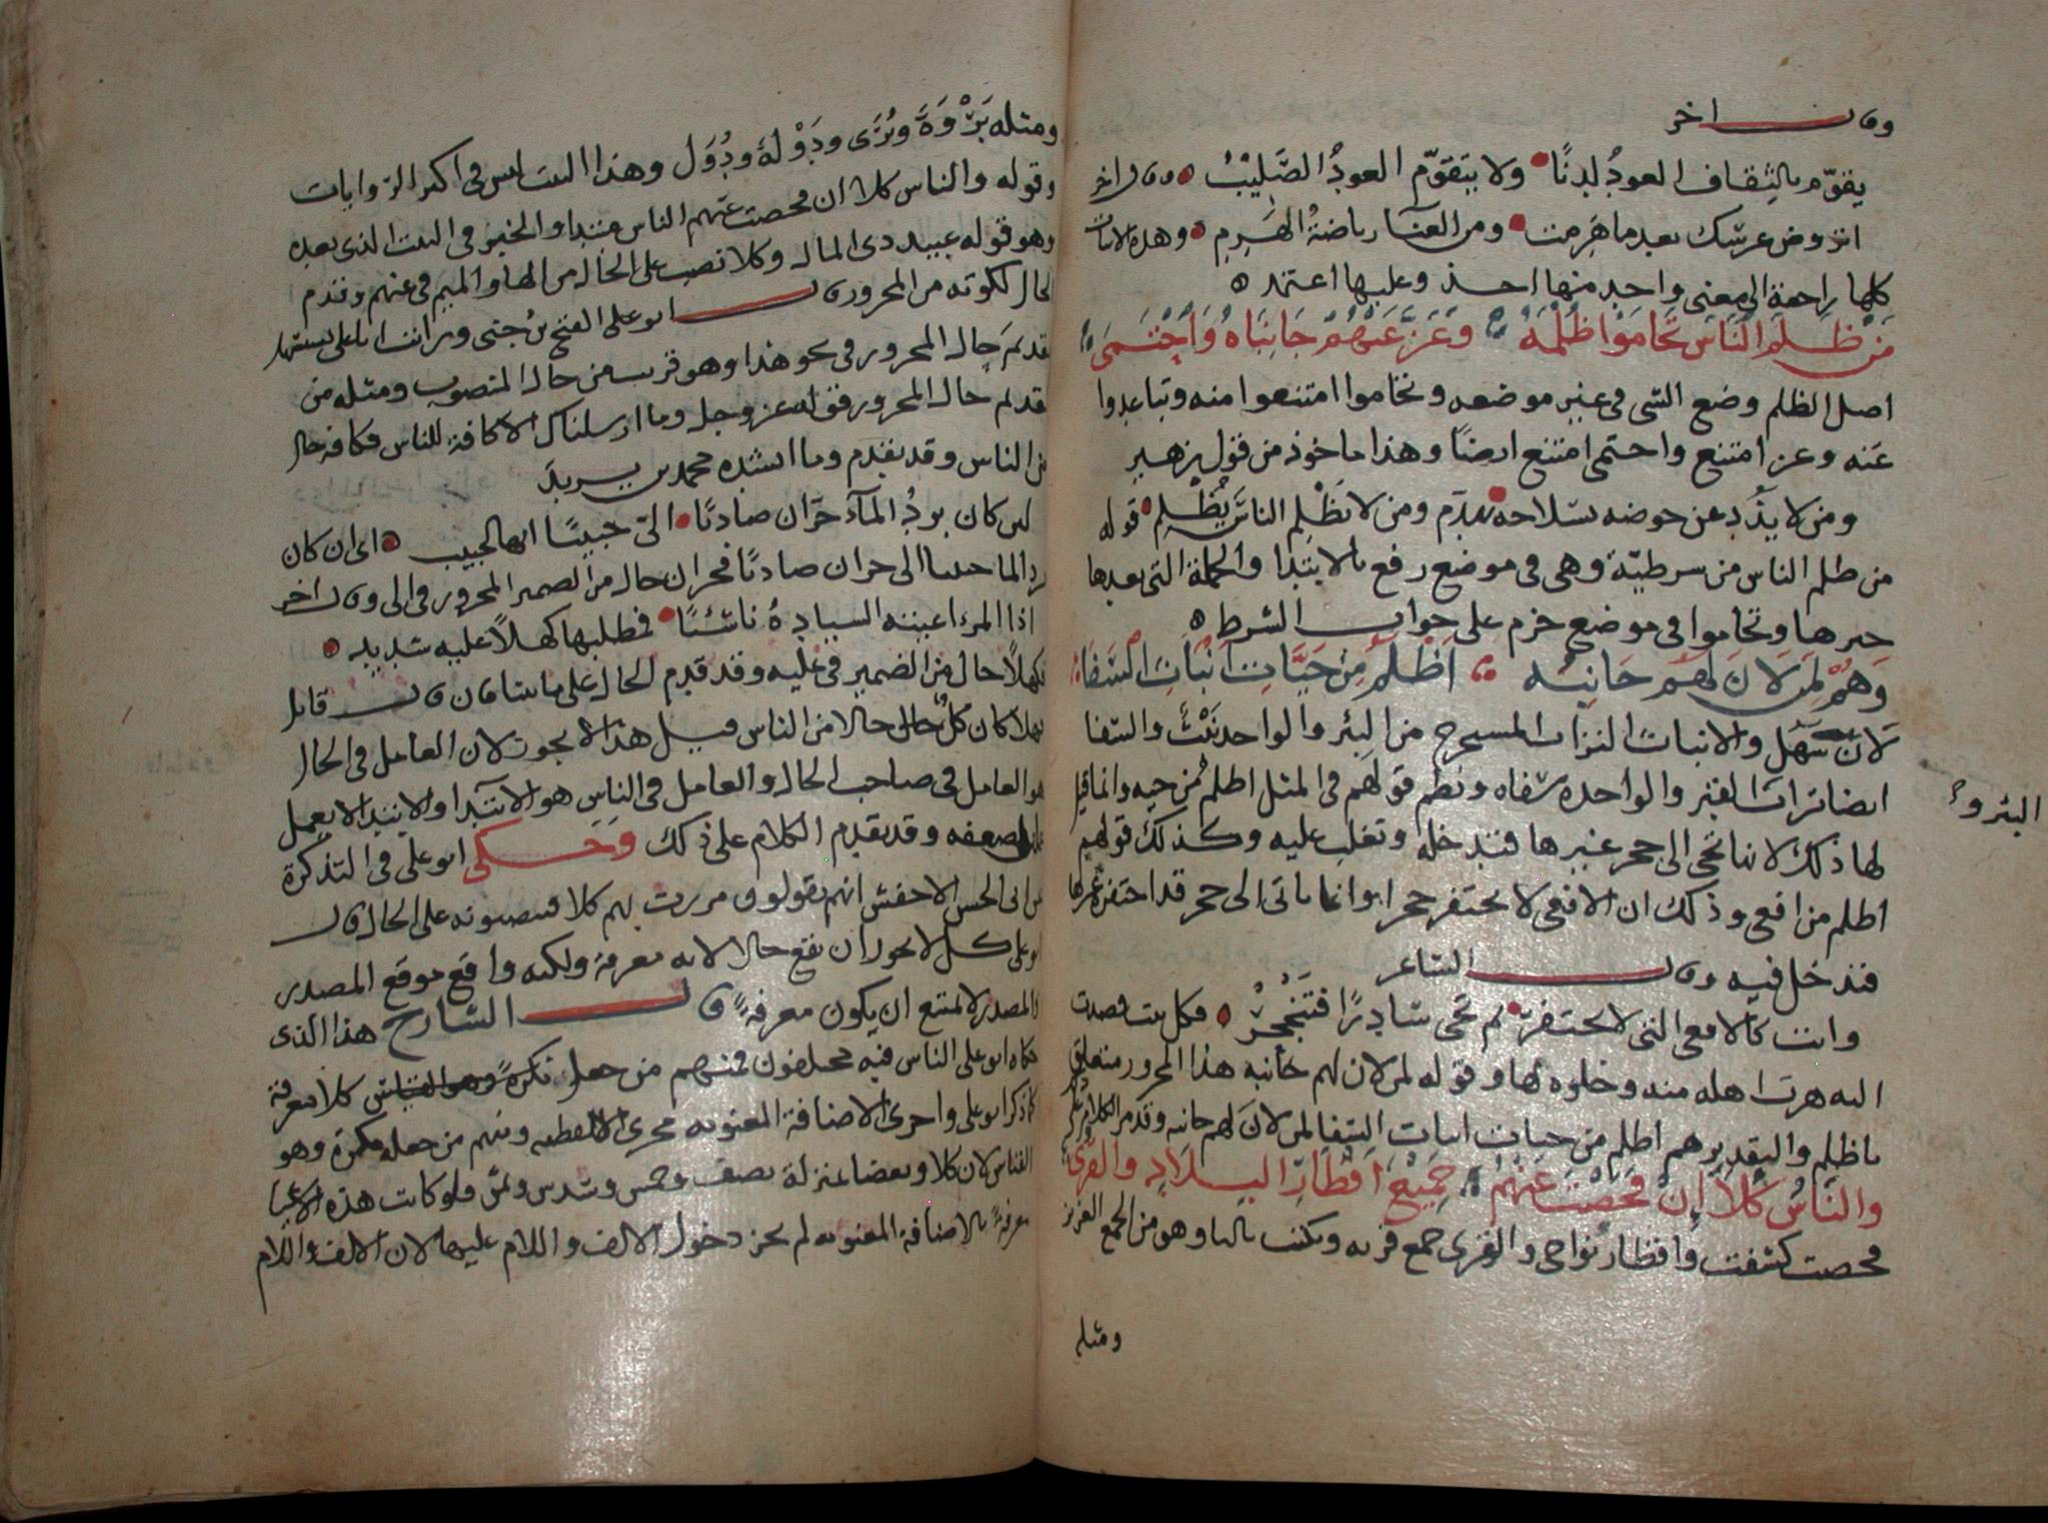 وقال اخر
يقوّم بالثِقاف العودُ لدنًا ولا يتقوّم العودُ الصَّليبُ وقال اخر
اتروض عرسك بعد ما هَرِمت ومن العنآ رياضةُ الهَرِمِ وهذه الابيات
كلها راجعة الى معنى واحد منها اخذ وعليها اعتمد
مَنْ ظَلَمَ النَّاسَ تَحَامَوْا ظُلْمَهُ وَعَزَّ عَنْهُمْ جَانِبَاهُ وَاحْتَمَى
اصل الظلم وضع الشي في غير موضعه وتحاموا امتنعوا منه وتباعدوا
عنه وعز امتنع واحتمى امتنع ايضًا وهذا ماخوذ من قول زهير
ومن لا يذُد عن حوضه بسلاحه يهدّم ومن لا يَظْلِم الناسَ يُظْلَمِ قوله
من ظلم الناس من شرطيّة وهي في موضع رفع بالابتدا والجملة التي بعدها
خبرها وتحاموا في موضع جزم على جواب الشرط
وَهُمْ لِمَنْ لَانَ لَهُمْ جَانِبُه اَظْلَمُ مِنْ حَيَّاتِ اَنْبَاثِ السَّفَا
لان سَهُل والانباث التراب المستخرج من البئر والواحد نَبْثٌ والسفا
ايضا تراب القبر والواحدة سفاه ونظم قولهم في المثل اظلم من حيه وانما قيل
البئر و
لها ذلك لانها تجى الى جحر غيرها فتدخله وتغلب عليه وكذلك قولهم
اظلم من افعى وذلك ان الافعى لا يحتفر جحرا وانما ياتى الى جحر قد احتفره غيرها
فتدخل فيه وقال الشاعر
وانت كالافعى التي لا تحتفر ثم تجى سادِرًا فتَنْجَحِرْ فكل بيت قصدت
اليه هرب اهله منه وخلوه لها وقوله لمن لان لهم جانبه هذا المجرور متعلق
باظلم والتقدير هم اظلم من حيات انباث السفا لمن لان لهم جانبه وقد مر الكلام على
والنَّاسُ كُلًّا إِنْ فَحَصْتَ عَنْهُمْ جَمِيْعَ اَقْطَارِ البِلَادِ والقُرَى
فحصت كشفت واقطار نواحي والقرى جمع قريه ويكتب باليا وهو من الجمع العزيز
ومثله
ومثله بَرْوَة وبُرًى ودَوْلة ودُوَل وهذا البيت ليس في اكثر الروايات
وقوله والناس كلا ان فحصت عنهم الناس مبتدا والخبر في البيت الذي بعده
وهو قوله عبيد ذي المال وكلا نصب على الحال من الها والميم في عنهم وقدم
الحال لكونه من المجرور قال ابو علي الفتح بن جني ورايت ابا علي يستسهل
تقديم حال المجرور في نحو هذا وهو قريب من حال المنصوب ومثله من
تقديم حال المجرور قوله عز وجل وما ارسلناك الا كافة للناس فكافة حال
من الناس وقد تقدم وما انشده محمد بن يزيد
لئن كان بردُ المآء حرّان صاديًا الىّ حبيبًا انها لحبيب اى ان كان
برد الما حبيبا الى حران صاديًا فحران حال من الضمير المجرور في الى وقال اخر
اذا المرء اعيته السيادةُ ناشئًا فمطلبها كهلًا عليه شديد
فكهلًا حال من الضمير في عليه وقد قدم الحال على ما قال قائل
فهلا كان كل حالا من الناس قيل هذا لا يجوز لان العامل في الحال
هو العامل في صاحب الحال والعامل في الناسِ هو الابتدا والابتدا لا يعمل
لضعفه وقد تقدم الكلام على ذلك وحكى ابو علي في التذكرة
عن ابى الحسن الاخفش انهم يقولون مررت بهم كلا فينصبونه على الحال قال
ابو على كل لا يجوز ان يقع حالا لانه معرفة ولكنه واقع موقع المصدر
والمصدر لا يمتنع ان يكون معرفةً قال الشارح هذا الذي
حكاه ابو على الناس فيه مختلفون فمنهم من جعل كلا معرفة
كما ذكر ابو على واجرى الاضافة المعنويه مجرى اللفظيه ومنهم من جعله نكرة وهو
القياس لان كلا وبعضا بمنزلة نصف وخمس وسدس وثمن فلو كانت هذه الاشيا
معرفةً بالاضافة المعنويه لم يجز دخول الالف واللام عليها لان الالف واللام